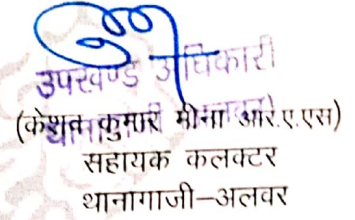 उपखण्ड अधिकारी
(केशव कुमार मीना आर.ए.एस)
सहायक कलक्टर
थानागाजी–अलवर